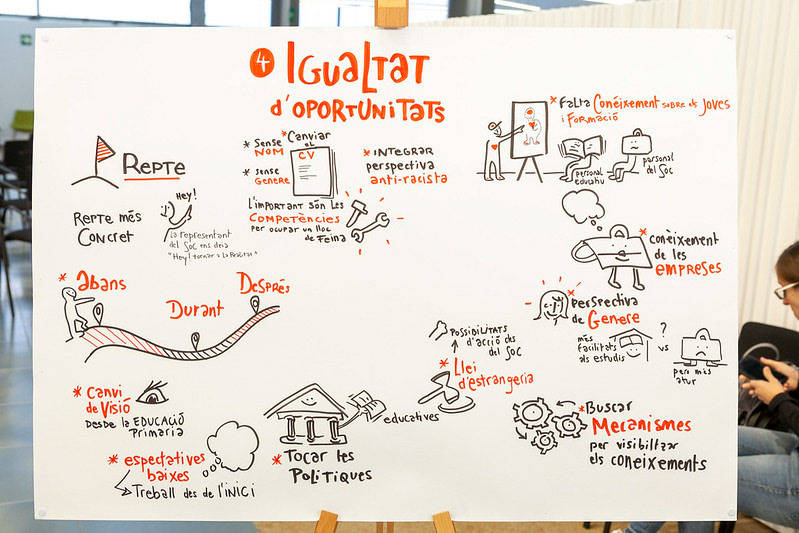 4 Igualtat
d'oportunitats
Repte
Repte més
concret
Hey!
La representant
del SOC ens deia
"Hey! tornar a la realitat"
* Canviar
el
CV
* Sense
NOM
* sense
Genere
* INTEGRAR
perspectiva
anti-racista
L'important són les
Competències
per ocupar un lloc
de Feina
* Falta Conéixement sobre els Joves
i Formació
personal
educatiu
personal
del SOC
* conèixement
de les
EMPRESES
* perspectiva
de Genere
més
facilitats
als estudis
?
vs
però més
atur
* abans
Durant
Després
possibilitats
d'acció des
del SOC
* Llei
d'estrangeria
* Canvi
de Visió
desde la EDUCACIÓ
Primaria
* espectatives
baixes
Treball des de l'inici
educatives
* Tocar les
Polítiques
* Buscar
Mecanismes
per visibiltzar
els coneixements